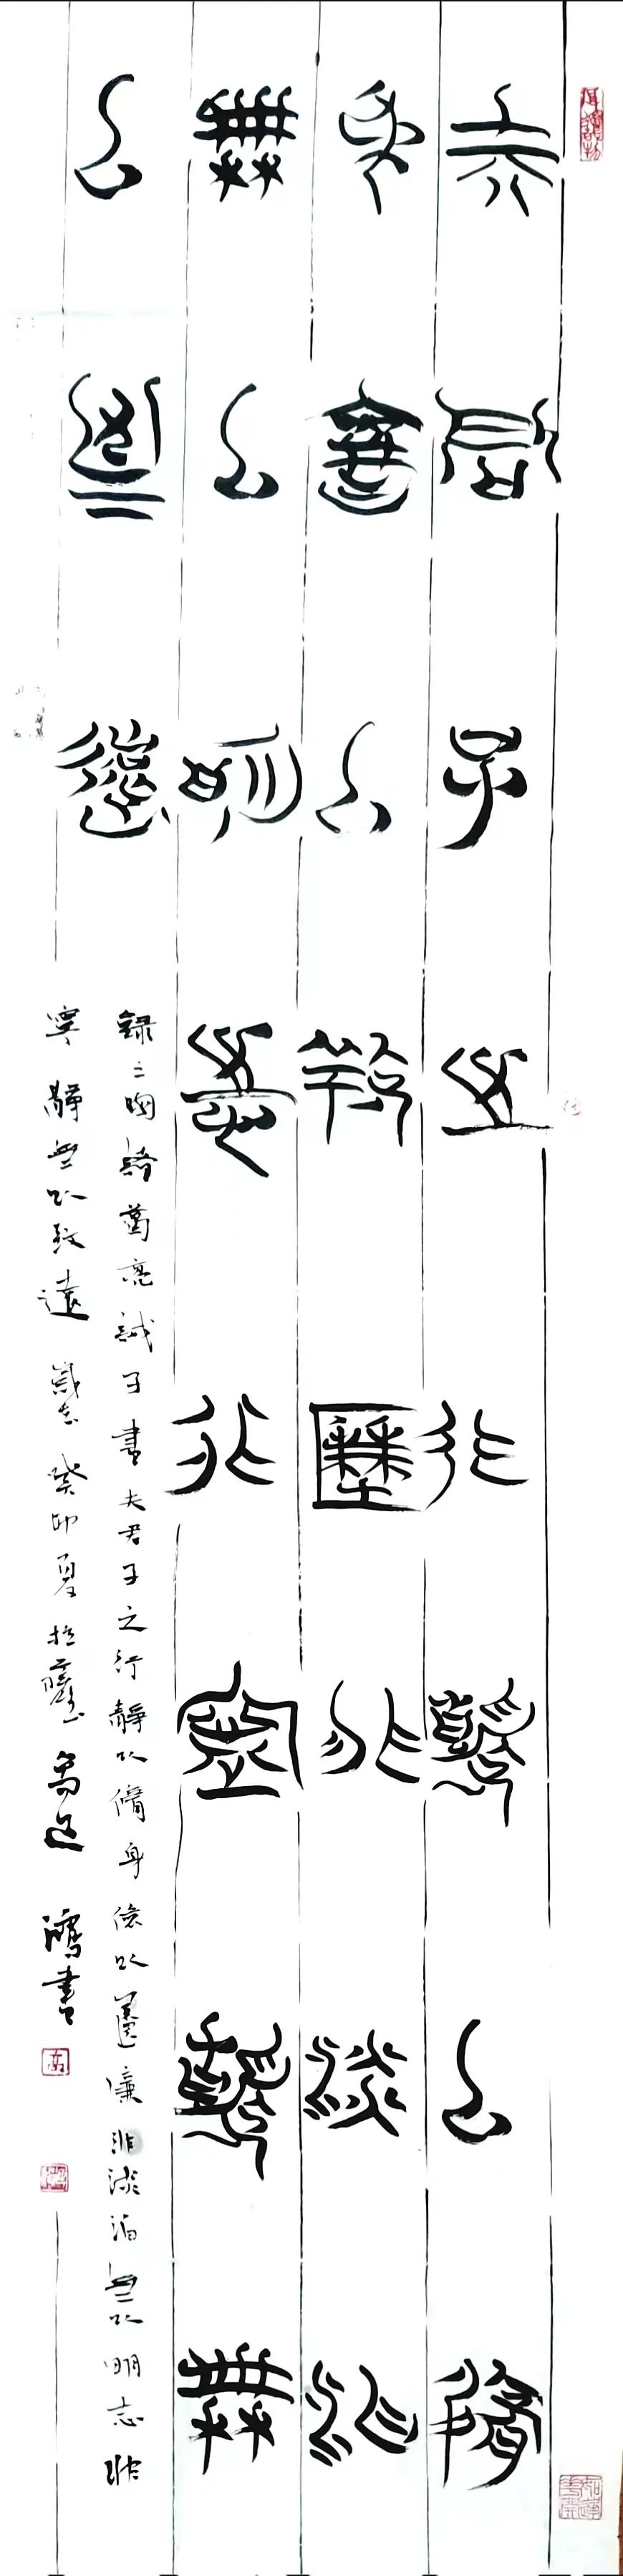 夫君子之行靜以脩
身儉以養廉非淡泊
無以明志非寧靜無
以致遠
錄三國諸葛亮誡子書夫君子之行靜以脩身儉以養廉非淡泊無以明志非
寧靜無以致遠 癸卯夏 鴻書